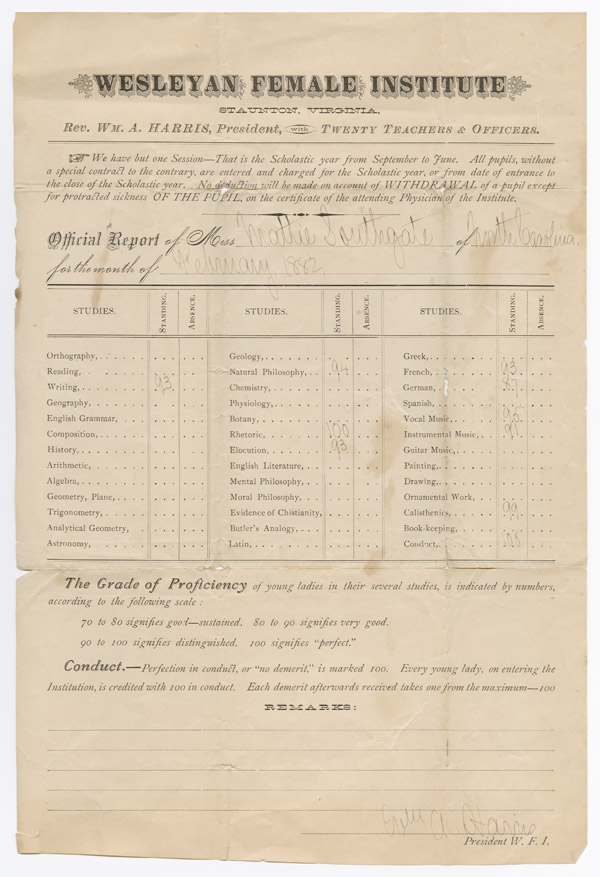 WESLEYAN FEMALE INSTITUTE
STAUNTON, VIRGINIA.
Rev. Wm. A. HARRIS, President, with Twenty Teachers & Officers.
We have but one Session—That is the Scholastic year from September to June. All pupils, without
a special contract to the contrary, are entered and charged for the Scholastic year, or from date of entrance to
the close of the Scholastic year. No deduction will be made on account of WITHDRAWAL of a pupil except
for protracted sickness OF THE PUPIL, on the certificate of the attending Physician of the Institute.
Official Report of Miss Mattie Southgate of North Carolina.
for the month of February 1882.
STUDIES. STANDING. ABSENCE. STUDIES. STANDING. ABSENCE. STUDIES. STANDING. ABSENCE.
Orthography, Geology, Greek,
Reading, Natural Philosophy, 94 French, 93
Writing, 93 Chemistry, German, 87
Geography, Physiology, Spanish,
English Grammar, Botany, Vocal Music, 95
Composition, Rhetoric, 100 Instrumental Music, 91
History, Elocution, 93 Guitar Music,
Arithmetic, English Literature, Painting,
Algebra, Mental Philosophy, Drawing,
Geometry, Plane, Moral Philosophy, Ornamental Work,
Trigonometry, Evidence of Chistianity, Calisthenics, 99
Analytical Geometry, Butler's Analogy, Book-keeping,
Astronomy, Latin, Conduct, 100
The Grade of Proficiency of young ladies in their several studies, is indicated by numbers,
according to the following scale:
70 to 80 signifies good—sustained. 80 to 90 signifies very good.
90 to 100 signifies distinguished. 100 signifies "perfect."
Conduct.—Perfection in conduct, or "no demerit," is marked 100. Every young lady, on entering the
Institution, is credited with 100 in conduct. Each demerit afterwards received takes one from the maximum—100
REMARKS:
Wm A. Harris
President W. F. I.